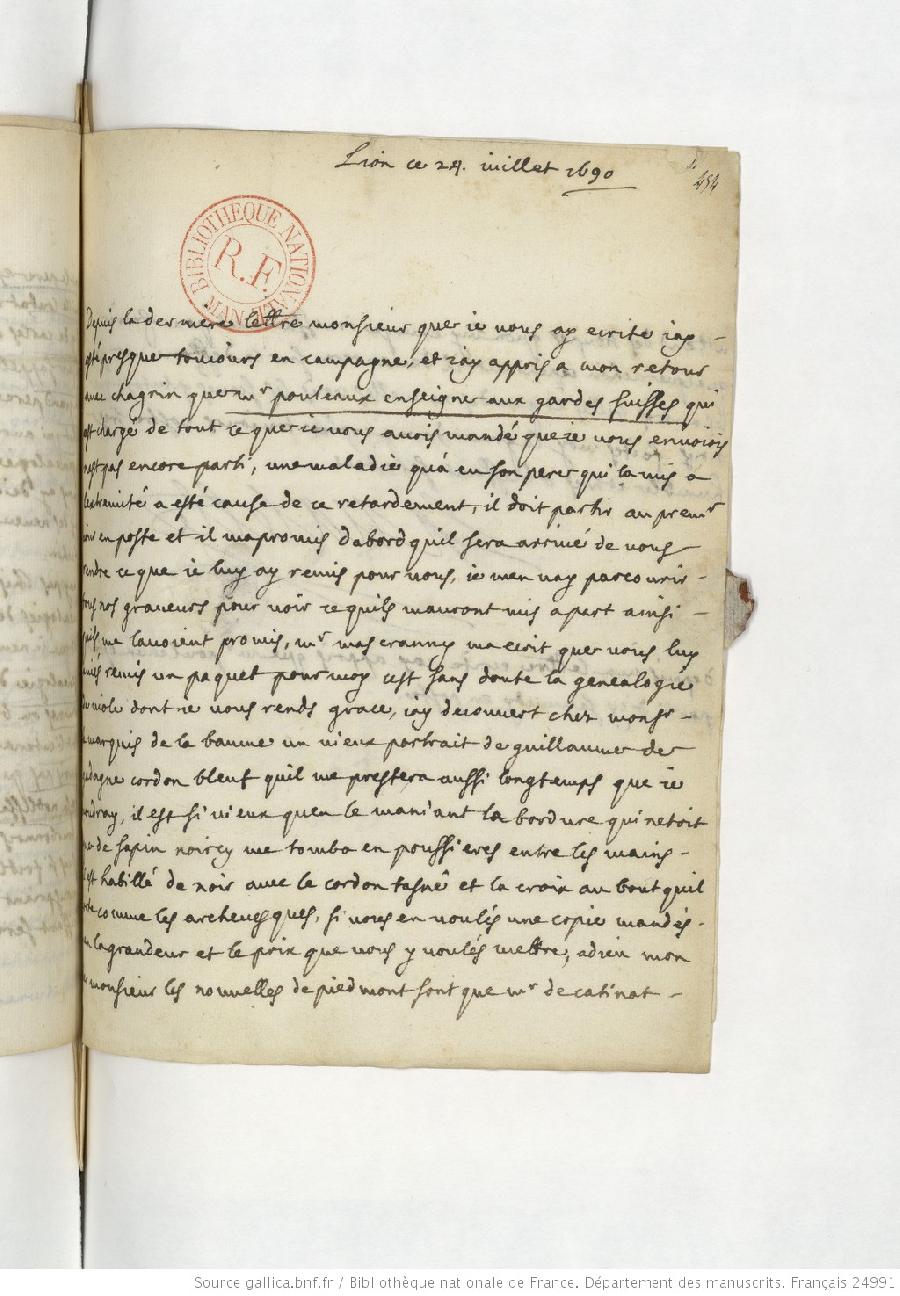 Lion ce 24. juillet 1690
454
BIBLIOTHEQUE NATIONALE MAN
R.F.
Depuis la derniere lettre monsieur que ie vous ay ecrite iay
esté presque tousiours en campagne, et iay appris a mon retour
avec chagrin que mr pouteaux enseigne aux gardes suisses qui
est chargé de tout ce que ie vous avois mandé que ie vous envoiois
nest pas encore parti, une maladie qua eu son pere qui la mis a
lextremité a esté cause de ce retardement, il doit partir au premr
iour en poste et il ma promis dabord quil sera arrivé de vous
rendre ce que ie luy ay remis pour vous, ie men vay parcourir
tous nos graveurs pour voir ce quils mauront mis a part ainsi
quils me lavoient promis, mr mascranny ma ecrit que vous luy
aviés remis un paquet pour moy cest sans doute la genealogie
de viole dont ie vous rends grace, iay decouvert chez monsr
le marquis de la baume un vieux portrait de guillaume de
gadagne cordon bleuf quil me prestera aussi longtemps que ie
voudray, il est si vieux quen le maniant la bordure qui netoit
que de sapin noircy me tomba en poussieres entre les mains
il est habillé de noir avec le cordon tasné et la croix au bout quil
porte comme les archevesques, si vous en voulés une copie mandés
en la grandeur et le prix que vous y voulés mettre, adieu mon
monsieur les nouvelles de piedmont sont que mr de catinat
Source gallica.bnf.fr / Bibliothèque nationale de France. Département des manuscrits. Français 24991